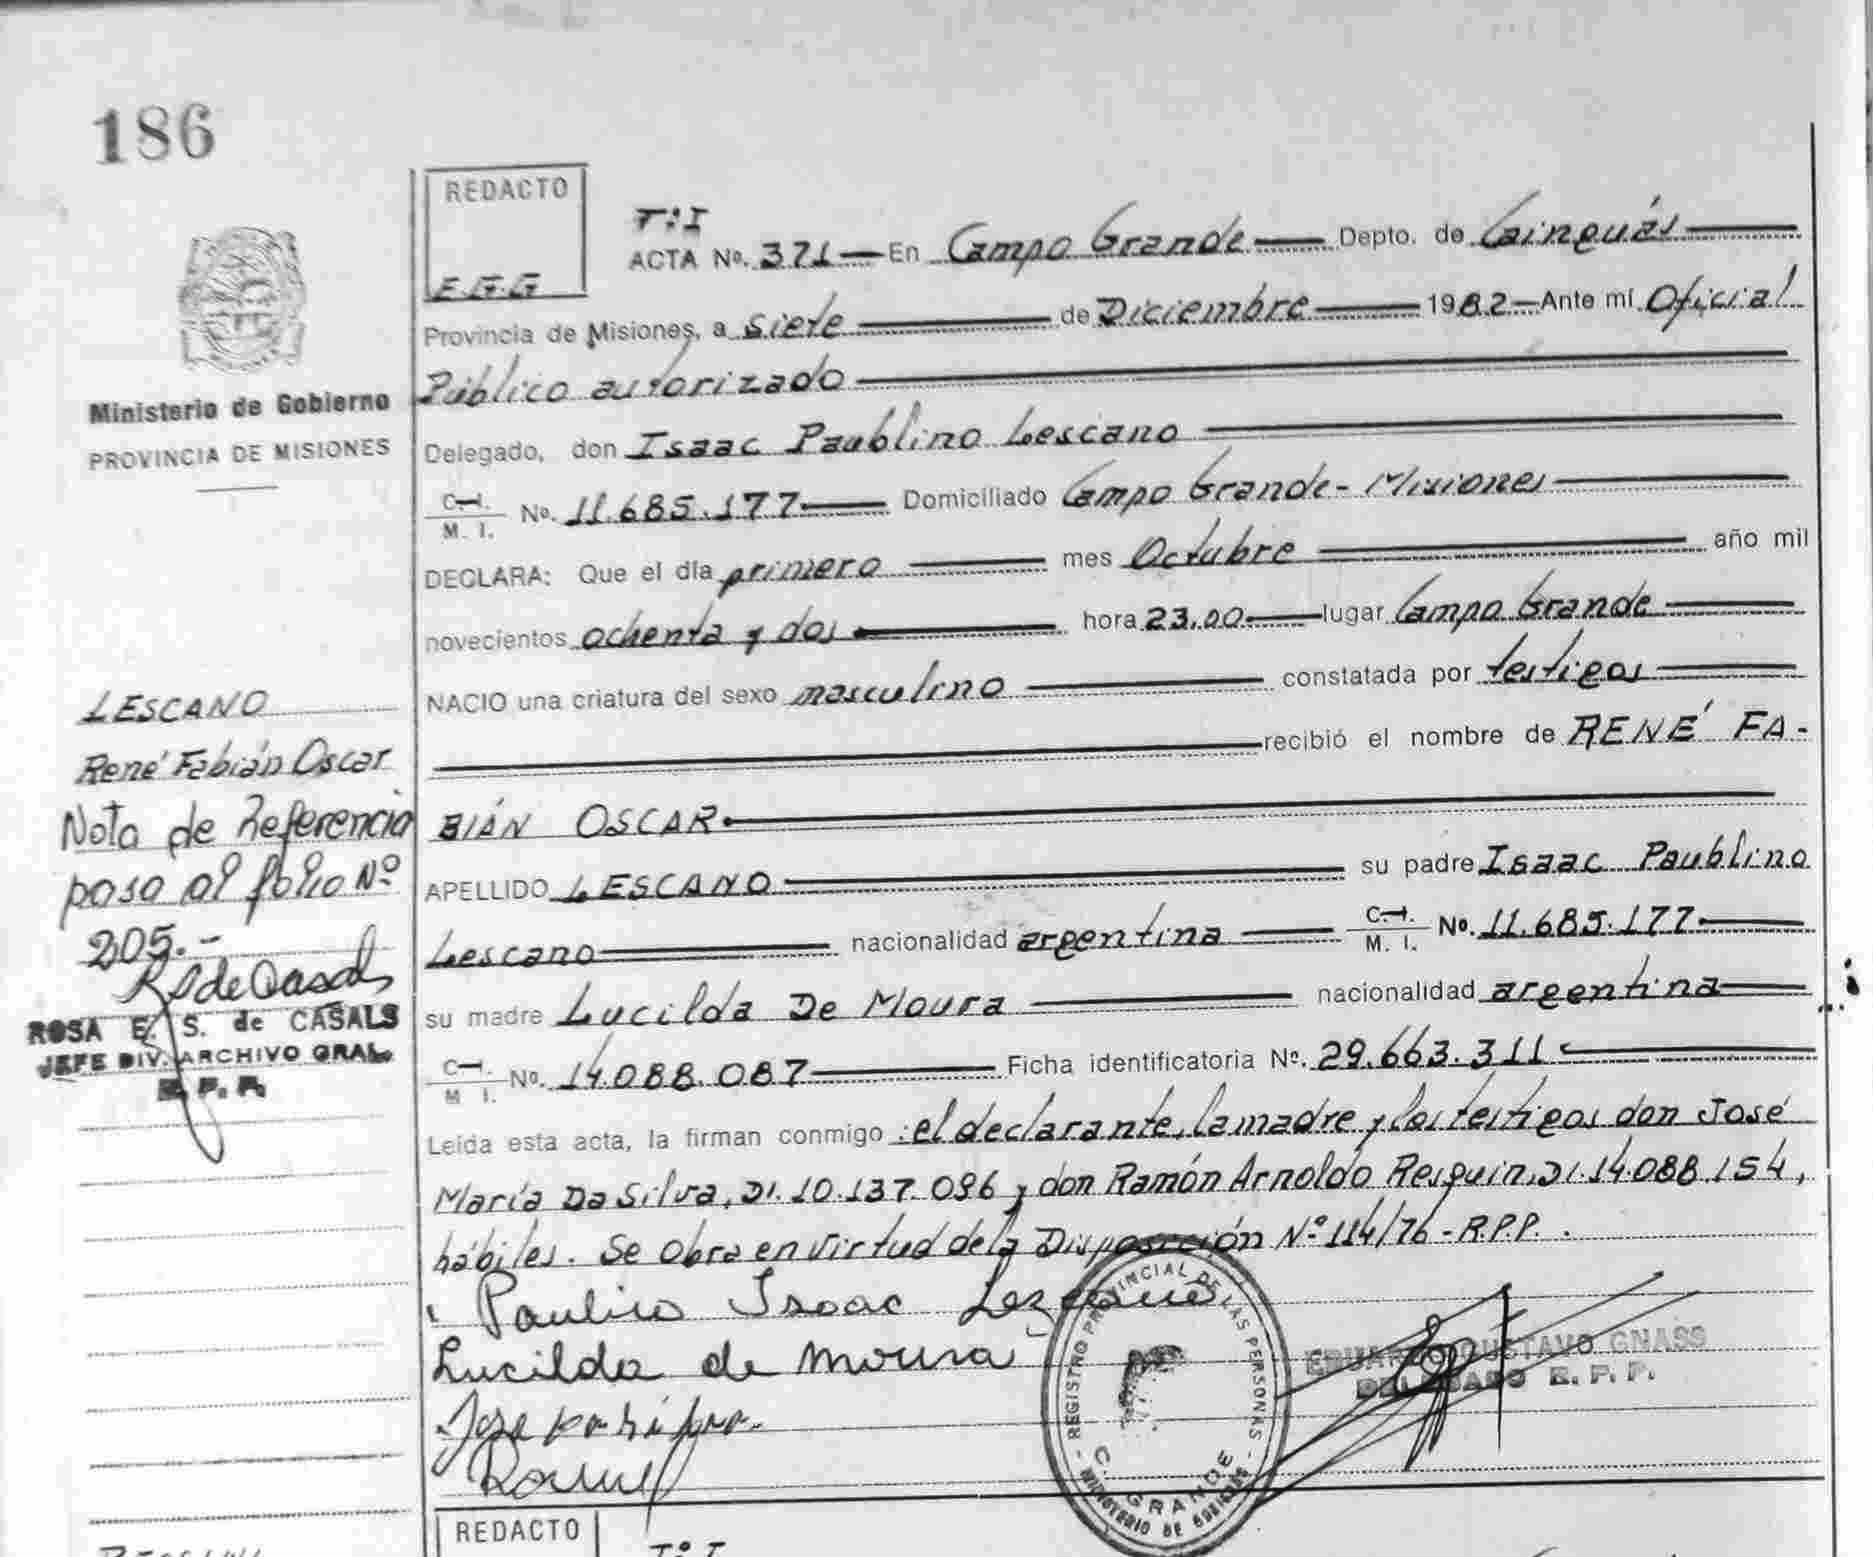 186
REDACTO
E.G.G
T: I
ACTA Nº. 371 En Campo Grande Depto. de Cainguás
Provincia de Misiones, a siete de Diciembre 1982 Ante mí Oficial
Público autorizado
Delegado, don Isaac Paublino Lescano
C.I. M. I. No. 11.685.177 Domiciliado Campo Grande - Misiones
DECLARA: Que el día primero mes Octubre año mil
novecientos ochenta y dos hora 23,00 lugar Campo Grande
NACIO una criatura del sexo masculino constatada por testigos
recibió el nombre de RENÉ FA-
BIÁN OSCAR
APELLIDO LESCANO su padre Isaac Paublino
Lescano nacionalidad argentina C.I. M. I. No. 11.685.177
su madre Lucilda De Moura nacionalidad argentina
C.I. M. I. No. 14.088.087 Ficha identificatoria Nº. 29.663.311
Leída esta acta, la firman conmigo : el declarante, la madre y los testigos don José
María Da Silva, DI. 10.137.096 y don Ramón Arnoldo Resquin, DI. 14.088.154,
hábiles. Se obra en virtud de la Disposición Nº 114/76 - R.P.P.
Paulino Isaac Lezcano
Lucilda de Moura
REGISTRO PROVINCIAL DE LAS PERSONAS
C. GRANDE
MINISTERIO DE GOBIERNO
EDUARDO GUSTAVO GNASS
DELEGADO R. P. P.
Ministerio de Gobierno
PROVINCIA DE MISIONES
LESCANO
René Fabián Oscar
Nota de Referencia
pasa al folio Nº
205.-
ROSA E. S. de CASALS
JEFE DIV. ARCHIVO GRAL.
R. P. P.
REDACTO
Tº I